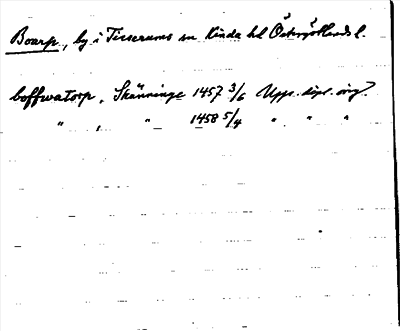 Boarp, by i Tisserums sn Kinda hd Östergötlands l.
boffwatorp, Skänninge 1457 3/6 Upps. dipl. orig.
" , " 1458 5/4 " " "